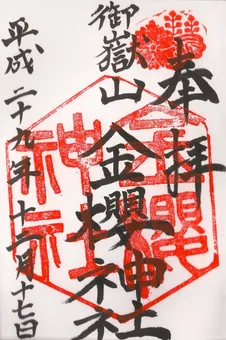 奉拝
御嶽山
金櫻神社
平成二十九年十一月十七日
金櫻
神社